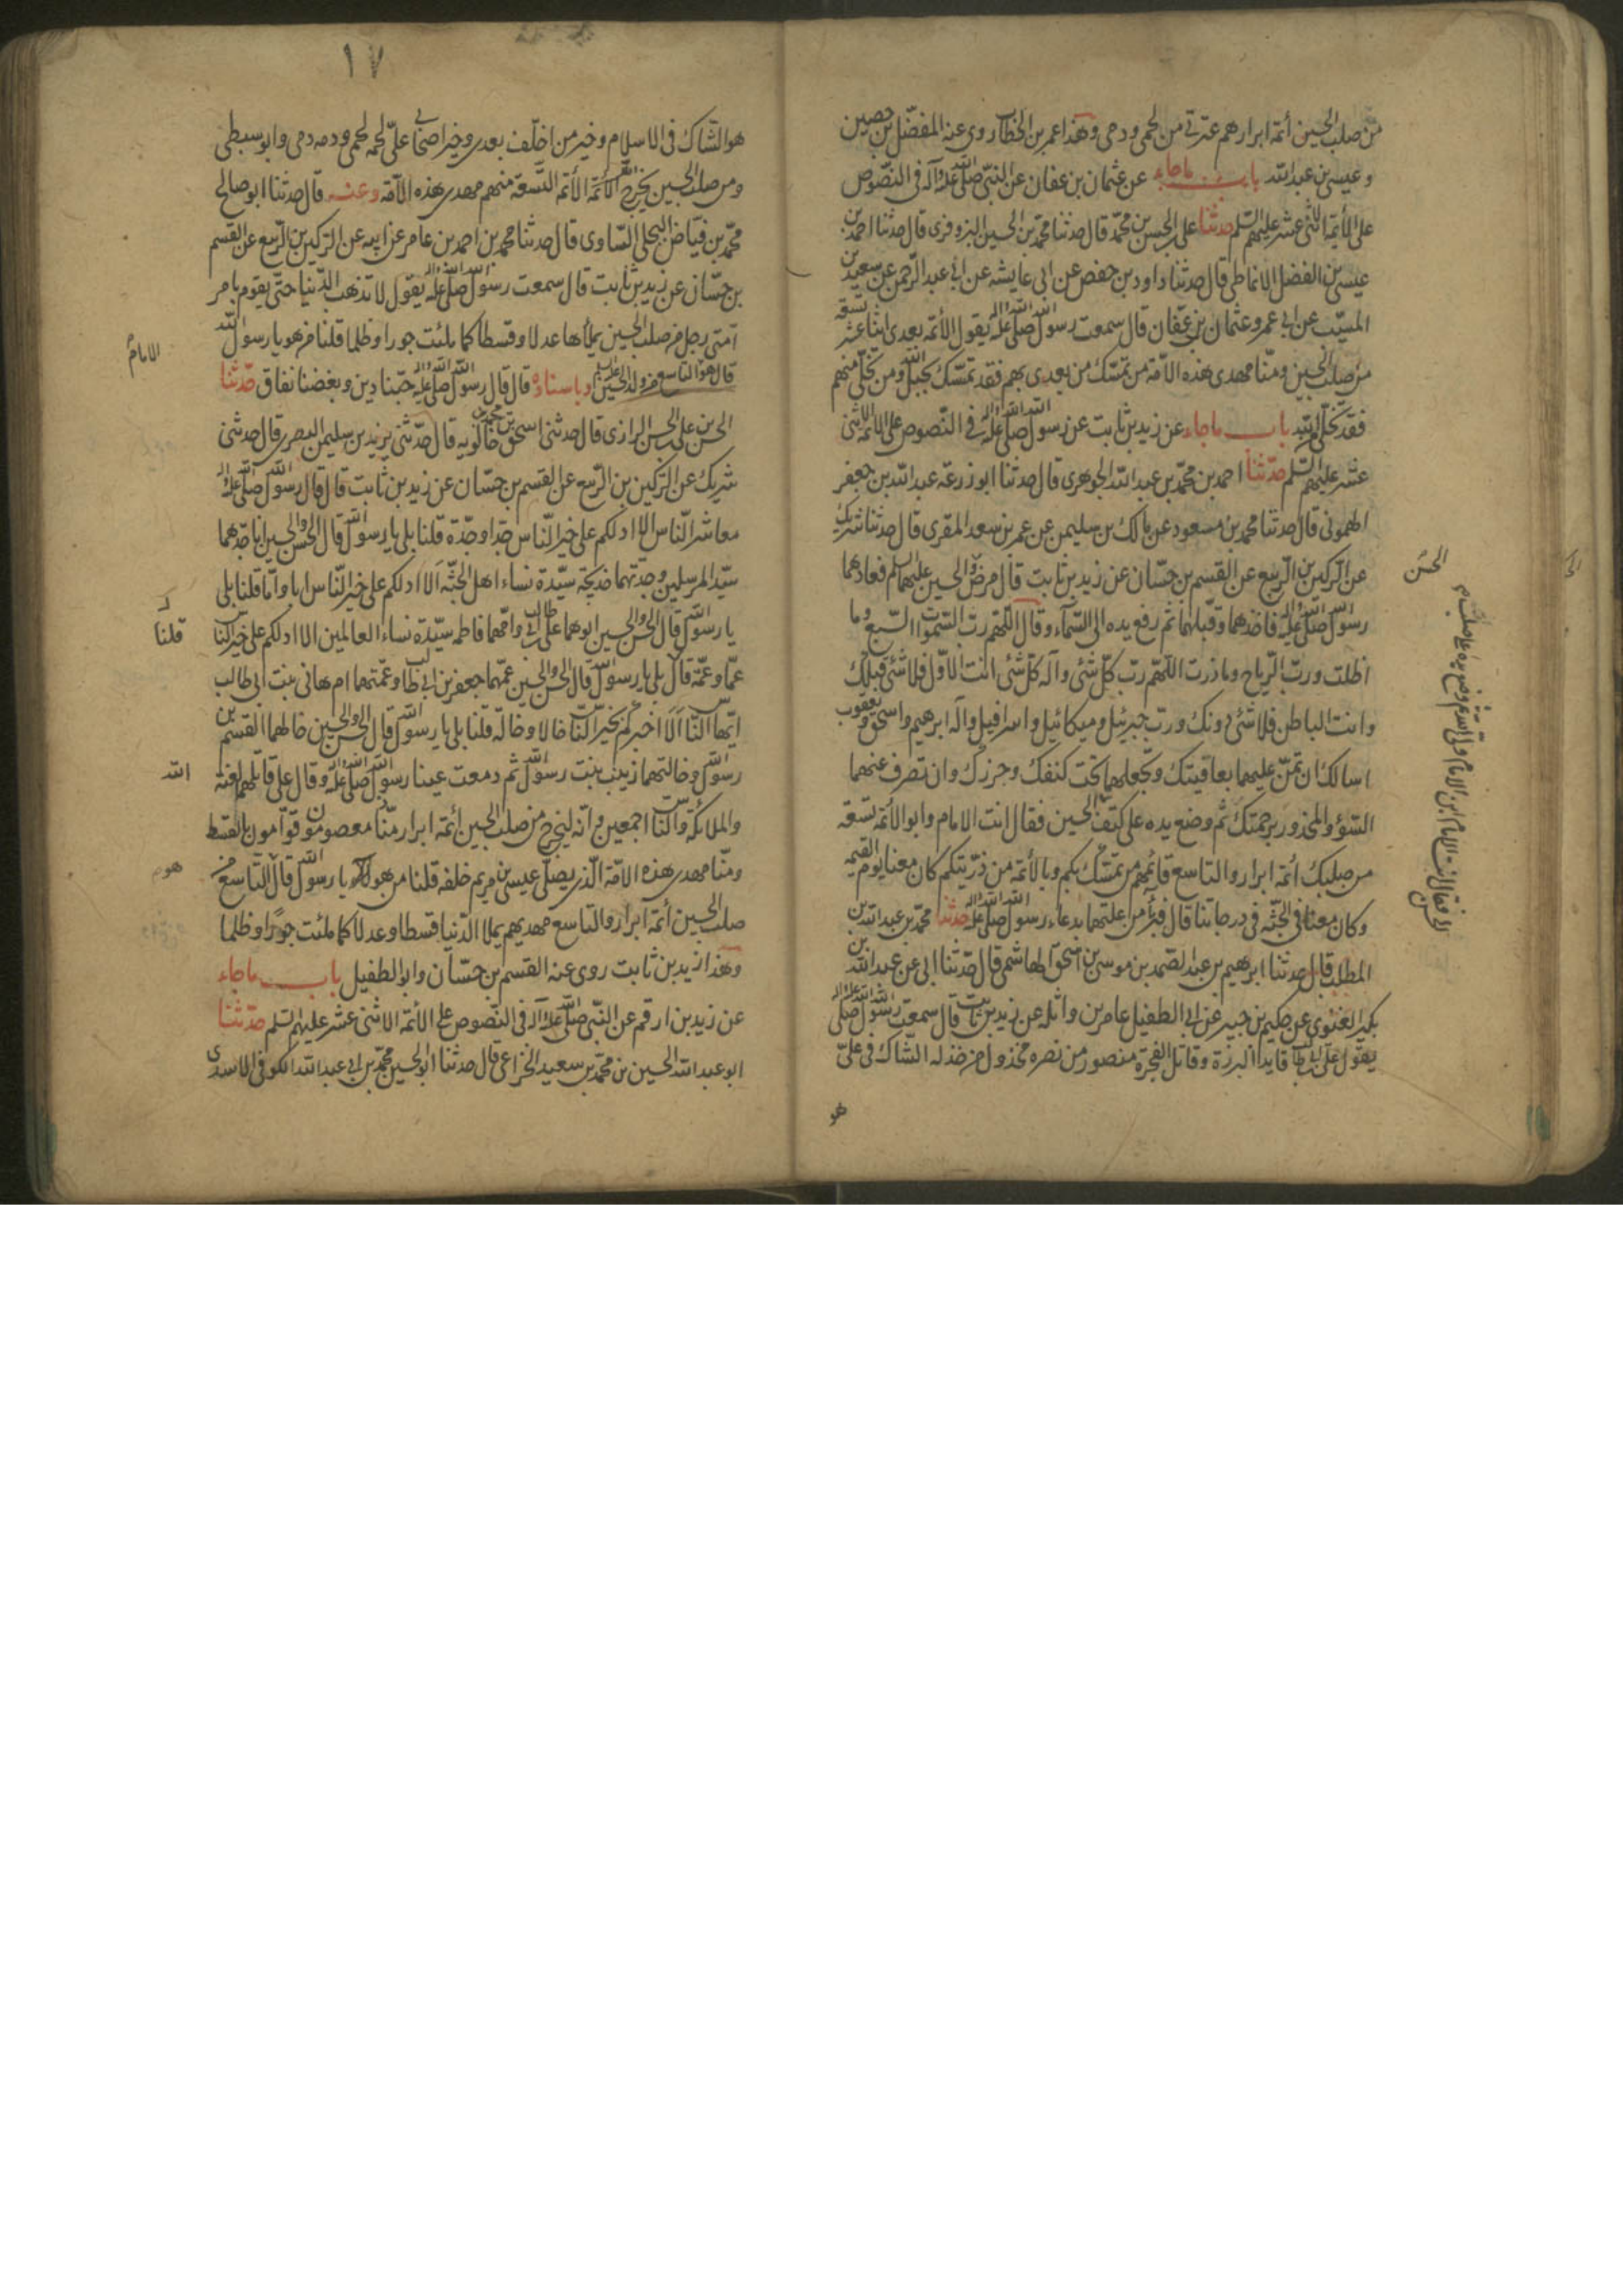 من صلب الحسين أئمة ابرار هم عترتي من لحمي ودمي وهذا عمر بن الخطاب روى عنه المفضل بن حصين
وعيسى بن عبد الله باب ما جاء عن عثمان بن عفان عن النبي صلى الله عليه وآله في النصوص
على الأئمة الاثنى عشر عليهم السلم حدثنا علي بن الحسن بن محمد قال حدثنا محمد بن الحسين البزوفرى قال حدثنا احمد بن
عيسى بن الفضل الانماطى قال حدثنا داود بن حفص عن ابى عايشه عن ابي عبد الرحمن عن سعيد بن
المسيب عن ابي عمرو عثمان بن عفان قال سمعت رسول الله صلى الله عليه واله يقول الأئمة بعدى اثنا عشر تسعة
من صلب الحسين ومنا مهدى هذه الامة من تمسك من بعدى بهم فقد تمسك بحبل الله ومن تخلى منهم
فقد تخلى من الله باب ما جاء عن زيد بن ثابت عن رسول الله صلى الله عليه واله في النصوص على الائمة الاثنى
عشر عليهم السلم حدثنا احمد بن محمد بن عبد الله الجوهرى قال حدثنا ابو زرعة عبد الله بن جعفر
الهمونى قال حدثنا محمد بن مسعود عن مالك بن سليمن عن عمر بن سعد المقرى قال حدثنا شريك
عن الركين بن الربيع عن القسم بن حسان عن زيد بن ثابت قال مرض الحسن والحسين عليهما السلم فعادهما
رسول الله صلى الله عليه واله فاخذهما وقبلهما ثم رفع يده الى السماء وقال اللهم رب السموات السبع وما
اظلت ورب الرياح وما ذرت اللهم رب كل شئ وآله كل شئ انت الاول فلا شئ قبلك
وانت الباطن فلا شئ دونك ورب جبرئيل وميكائيل واسرافيل وآله ابرهيم واسحق ويعقوب
اسالك ان تمن عليهما بعافيتك وتجعلهما تحت كنفك وحرزك وان تصرف عنهما
السوء والمحذور برحمتك ثم وضع يده على كتف الحسين فقال انت الامام وابو الأئمة تسعة
من صلبك ائمة ابرار والتاسع قائمهم من تمسك بكم وبالأئمة من ذريتكم كان معنا يوم القيمه
وكان معنا في الجنة في درجاتنا قال فبرآ من علتهما بدعاء رسول الله صلى الله عليه واله حدثنا محمد بن عبد الله بن
المطلب قال حدثنا ابرهيم بن عبد الصمد بن موسى بن اسحق الهاشمى قال حدثنا ابى عن عبد الله بن
بكير الغنوى عن حكيم بن جبير عن ابى الطفيل عامر بن واثلة عن زيد بن ثابت قال سمعت رسول الله صلى الله عليه واله
يقول على بن ابى طالب قايد البررة وقاتل الفجرة منصور من نصره مخذول من خذله الشاك في علي
هو
الحسن
١٧
هو الشاك في الاسلام وخير من اخلف بعدى وخير اصحابى على لحمه لحمى ودمه دمى وابو سبطى
ومن صلب الحسين يخرج الأئمة التسعة منهم مهدى هذه الأمة وعنه قال حدثنا ابو صالح
محمد بن فياض العجلى الساوى قال حدثنا محمد بن احمد بن عامر عن ابيه عن الركين بن الربيع عن القسم
بن حسان عن زيد بن ثابت قال سمعت رسول الله صلى الله عليه واله يقول لا تذهب الدنيا حتى يقوم بامر
امتى رجل من صلب الحسين يملأها عدلا وقسطا كما ملئت جورا وظلما قلنا من هو يا رسول الله
قال هو التاسع من ولد الحسين وباسناده قال قال رسول الله صلى الله عليه واله حبنا دين وبغضنا نفاق حدثنا
الحسن بن على بن الحسن الرازى قال حدثنى اسحق بن محمد بن خالويه قال حدثنى يزيد بن سليمن البصرى قال حدثنى
شريك عن الركين بن الربيع عن القسم بن حسان عن زيد بن ثابت قال قال رسول الله صلى الله عليه واله
معاشر الناس الا ادلكم على خير الناس جدا وجدة قلنا بلى يا رسول الله قال الحسن والحسين انا جدهما
سيد المرسلين وجدتهما خديجة سيدة نساء اهل الجنة ألا ادلكم على خير الناس ابا واما قلنا بلى
يا رسول الله قال الحسن والحسين ابوهما على بن ابى طالب وامهما فاطمه سيدة نساء العالمين الا ادلكم على خير الناس
عما وعمة قال بلى يا رسول الله قال الحسن والحسين عمهما جعفر بن ابى طالب وعمتهما ام هانى بنت ابى طالب
ايها الناس ألا اخبركم بخير الناس خالا وخالة قلنا بلى يا رسول الله قال الحسن والحسين خالهما القسم بن
رسول الله وخالتهما زينب بنت رسول الله ثم دمعت عينا رسول الله صلى الله عليه واله وقال على قاتلهم لعنة
والملائكة والناس اجمعين وانه ليخرج من صلب الحسين أئمة ابرار منا معصومون قوامون بالقسط
ومنا مهدى هذه الامة الذى يصلى عيسى بن مريم خلفه قلنا من هو يا رسول الله قال التاسع من
صلب الحسين أئمة ابرار والتاسع مهديهم يملا الدنيا قسطا وعدلا كما ملئت جورا وظلما
وهذا زيد بن ثابت روى عنه القسم بن حسان وابو الطفيل باب ما جاء
عن زيد بن ارقم عن النبي صلى الله عليه وآله في النصوص على الأئمة الاثنى عشر عليهم السلم حدثنا
ابو عبد الله الحسين بن محمد بن سعيد الخزاعى قال حدثنا ابو الحسين محمد بن ابى عبد الله الكوفى الاسدى
الامام
قلنا
الله